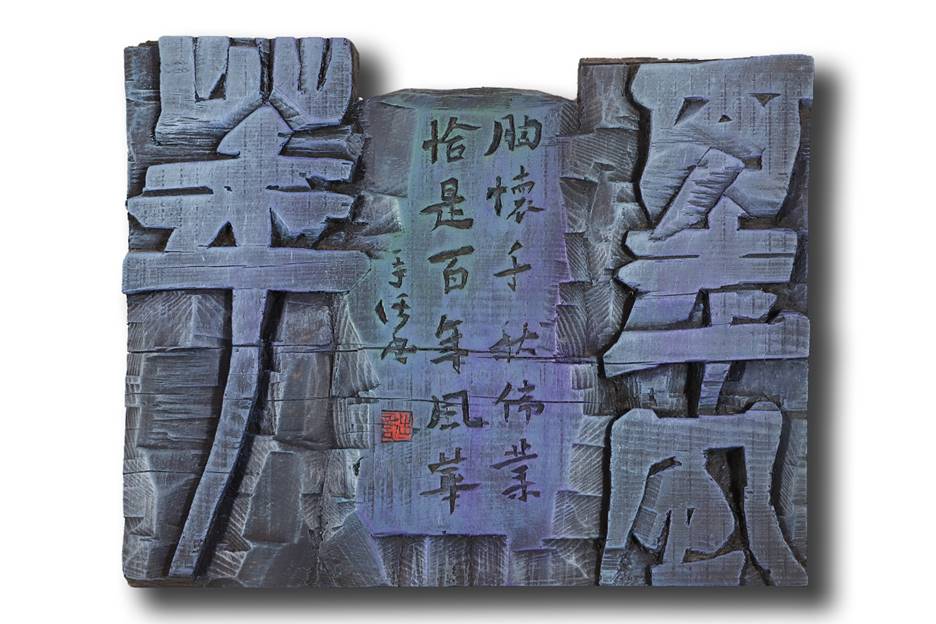 百年風
胸懷千秋偉業
恰是百年風華
華